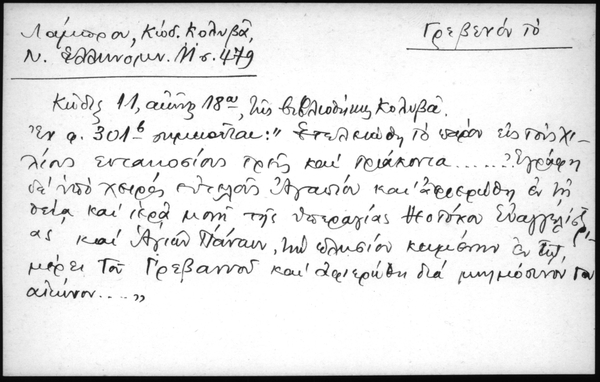 Λάμπρου, Κώδ. Κολυβᾶ,
Ν. Ἑλληνομν. ΙΙ σ. 479
Γρεβενόν τὸ
Κῶδιξ 11, αἰῶνος 18ου, τῆς βιβλιοθήκης Κολυβᾶ.
Ἐν φ. 301β σημειοῦται: " Ἐτελειώθη τὸ παρὸν εἰς τοὺς χι-
λίους ἑπτακοσίους τρεῖς καὶ τριάκοντα........ Ἐγράφη
δι' ὑπὸ χειρὸς εὐτελοῦς Ἀγαπίου καὶ ἀφιερώθη ἐν τῇ
θείᾳ καὶ ἱερᾷ μονῇ τῆς ὑπεραγίας Θεοτόκου Εὐαγγελιστρί-
ας καὶ Ἁγίων Πάντων, τὴν πλησίον κειμένην ἐν τῷ
μέρει τοῦ Γρεβαινοῦ καὶ ἀφιερώθη διὰ μνημόσυνον τοῦ
αἰώνον.... "